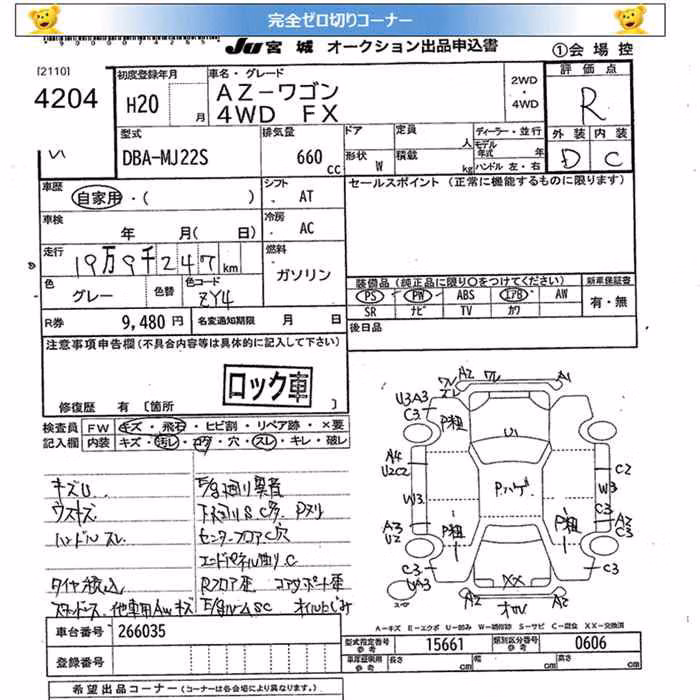 完全ゼロ切りコーナー
Ju 宮城 オークション出品申込書
①会場控
[2110]
4204
初度登録年月
H20 月
車名・グレード
AZ-ワゴン
4WD FX
2WD
・
4WD
評価点
R
外装 内装
D C
型式
DBA-MJ22S
排気量
660 cc
ドア
定員 人
形状 W
積載 kg
ディーラー・並行
モデル年式 年
ハンドル 左・右
車歴
自家用・( )
シフト
AT
セールスポイント (正常に機能するものに限ります)
車検
年 月( 日)
冷房
AC
走行
19万9千247km
燃料
ガソリン
色
グレー
色替
色コード
ZY4
装備品 (純正品に限り○をつけてください)
PS PW ABS エアB AW
SR ナビ TV カワ
新車保証書
有・無
R券 9,480円
名変通知期限 月 日
後日品
注意事項申告欄(不具合内容等は具体的に記入して下さい)
ロック車
修復歴 有 [箇所 ]
検査員記入欄
FW キズ・飛石・ヒビ割・リペア跡・×要
内装 キズ・汚レ・コゲ・穴・スレ・キレ・破レ
キズU
ウスキズ
ハンドルスレ
タイヤ積込
下廻りSC多 Pヌリ
センターフロアC穴
エンドパネル曲りC
Rフロア歪 コアサポート歪
スタッドレス 他車用AWキズ
オイルにじみ
A2 ワレ A1
U3A3
C3
P粗
U1
A4
U2C2
W3
Pハゲ
C2
W3
C3
A3
U2
P粗
P粗
A2
C3
C3
XX
C3
UA3
A2 A2
A-キズ E-エクボ U-凹み W-補修跡 S-サビ C-腐食 XX-交換済
車台番号 266035
登録番号
型式指定番号 参考 15661
類別区分番号 参考 0606
長さ cm 幅 cm 高さ cm
希望出品コーナー (コーナーは各会場により異なります。)